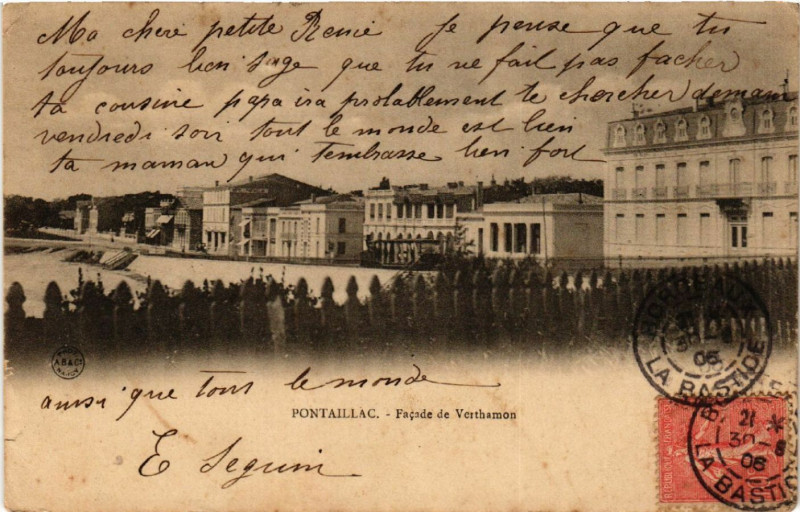 Ma chere petite Renée je pense que tu
toujours bien sage que tu ne fait pas facher
ta cousine papa ira probablement te chercher demain
vendredi soir tout le monde est bien
ta maman qui t'embrasse bien fort
ainsi que tout le monde
PONTAILLAC. - Façade de Verthamon
E Seguin
BORDEAUX
30-8
06
LA BASTIDE
21
30-8
06
LA BASTIDE